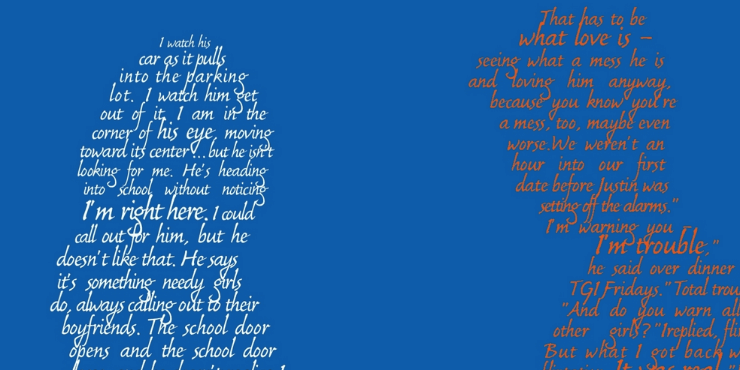 I watch his
car as it pulls
into the parking
lot. I watch him get
out of it. I am in the
corner of his eye, moving
toward its center... but he isn't
looking for me. He's heading
into school without noticing
I'm right here. I could
call out for him, but he
doesn't like that. He says
it's something needy girls
do, always calling out to their
boyfriends. The school door
opens and the school door
That has to be
what love is –
seeing what a mess he is
and loving him anyway,
because you know you're
a mess, too, maybe even
worse.We weren't an
hour into our first
date before Justin was
setting off the alarms."
I'm warning you –
I'm trouble,"
he said over dinner
TGI Fridays."Total
"And do you warn
other girls?"Ireplied,
But what I got back